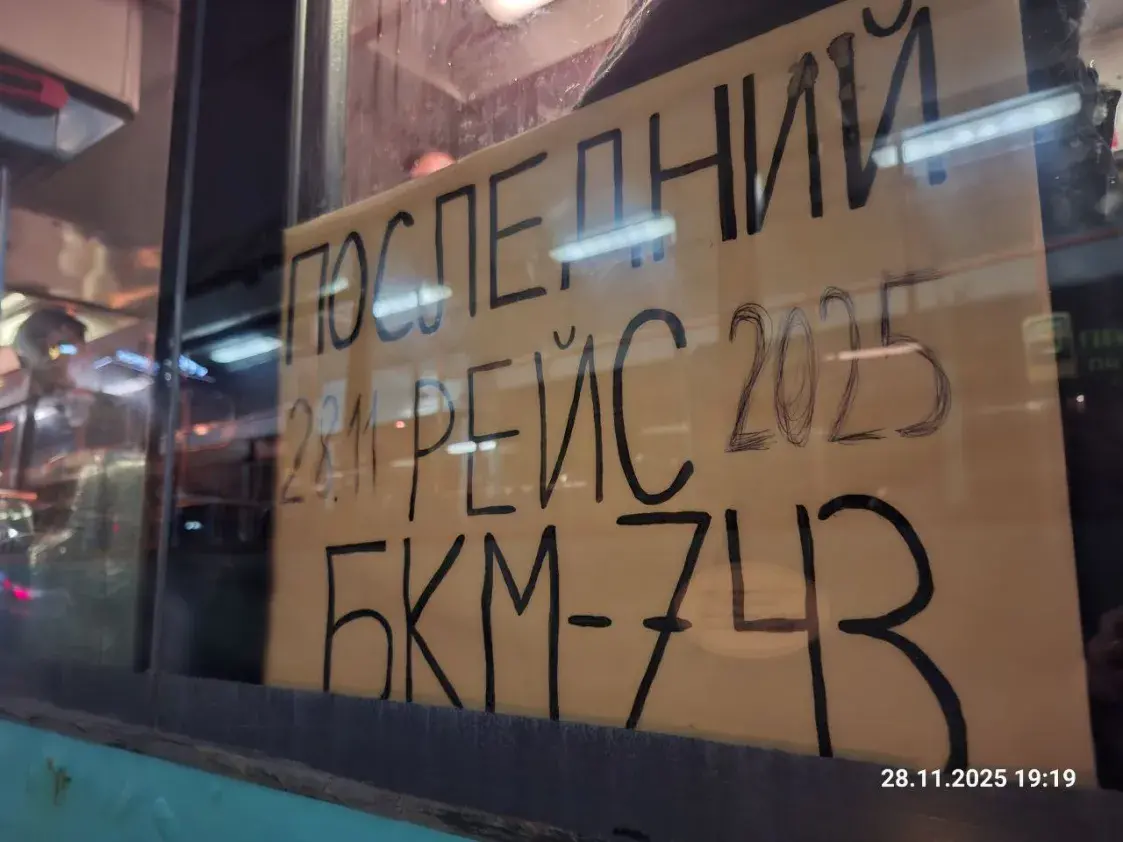 ПОСЛЕДНИЙ
28.11 РЕЙС 2025
БКМ-743
28.11.2025 19:19